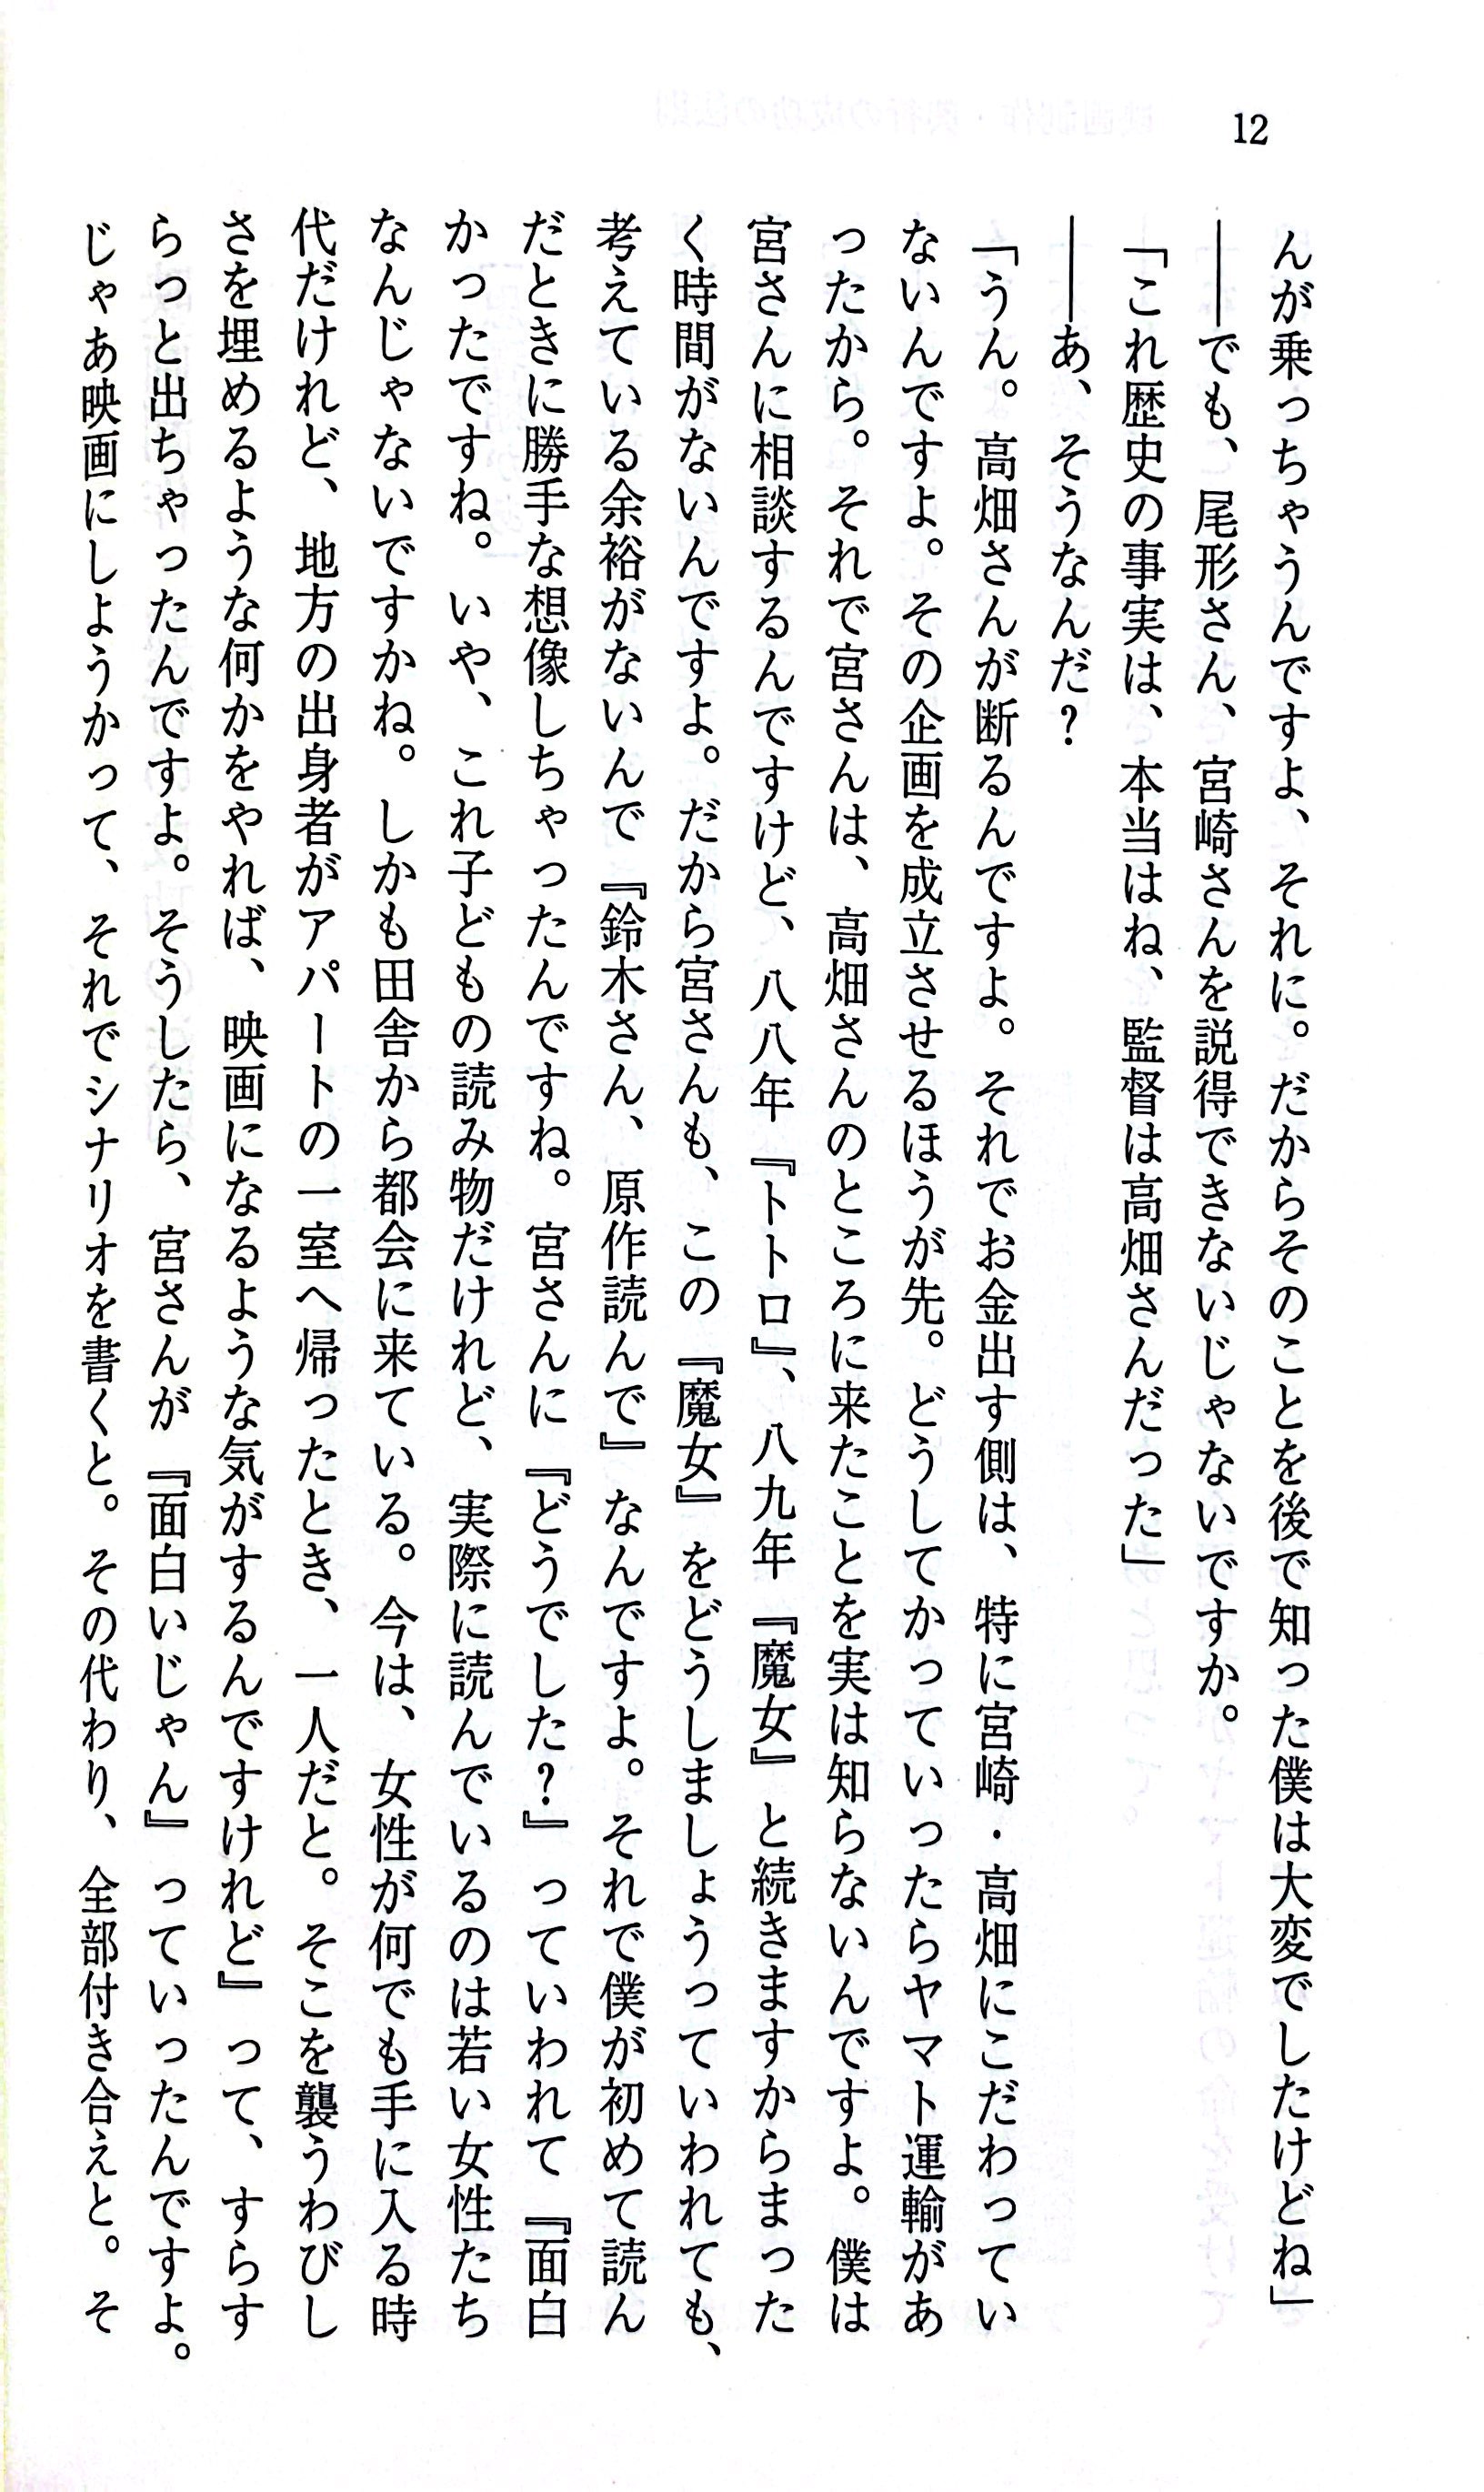 12
んが乗っちゃうんですよ、それに。だからそのことを後で知った僕は大変でしたけどね」
――でも、尾形さん、宮崎さんを説得できないじゃないですか。
「これ歴史の事実は、本当はね、監督は高畑さんだった」
――あ、そうなんだ？
「うん。高畑さんが断るんですよ。それでお金出す側は、特に宮崎・高畑にこだわってい
ないんですよ。その企画を成立させるほうが先。どうしてかっていったらヤマト運輸があ
ったから。それで宮さんは、高畑さんのところに来たことを実は知らないんですよ。僕は
宮さんに相談するんですけど、八八年『トトロ』、八九年『魔女』と続きますからまった
く時間がないんですよ。だから宮さんも、この『魔女』をどうしましょうっていわれても、
考えている余裕がないんで『鈴木さん、原作読んで』なんですよ。それで僕が初めて読ん
だときに勝手な想像しちゃったんですね。宮さんに『どうでした？』っていわれて『面白
かったですね。いや、これ子どもの読み物だけれど、実際に読んでいるのは若い女性たち
なんじゃないですかね。しかも田舎から都会に来ている。今は、女性が何でも手に入る時
代だけれど、地方の出身者がアパートの一室へ帰ったとき、一人だと。そこを襲うわびし
さを埋めるような何かをやれば、映画になるような気がするんですけれど』って、すらす
らっと出ちゃったんですよ。そうしたら、宮さんが『面白いじゃん』っていったんですよ。
じゃあ映画にしようかって、それでシナリオを書くと。その代わり、全部付き合えと。そ